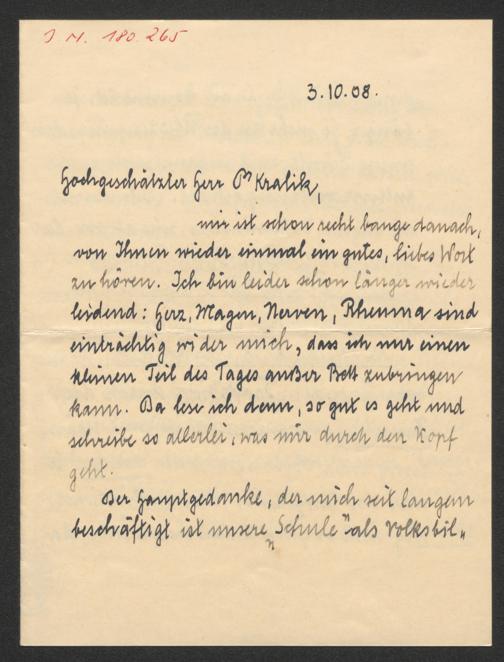 J N. 180.265
3.10.08.
Hochgeschätzter Herr Dr Kralik,
mir ist schon recht bange danach,
von Ihnen wieder einmal ein gutes, liebes Wort
zu hören. Ich bin leider schon länger wieder
leidend: Herz, Magen, Nerven, Rheuma sind
einträchtig wider mich, dass ich nur einen
kleinen Teil des Tages außer Bett zubringen
kann. Da lese ich denn, so gut es geht und
schreibe so allerlei, was mir durch den Kopf
geht.
Der Hauptgedanke, der mich seit langem
beschäftigt ist unsere „Schule" als Volksbil„